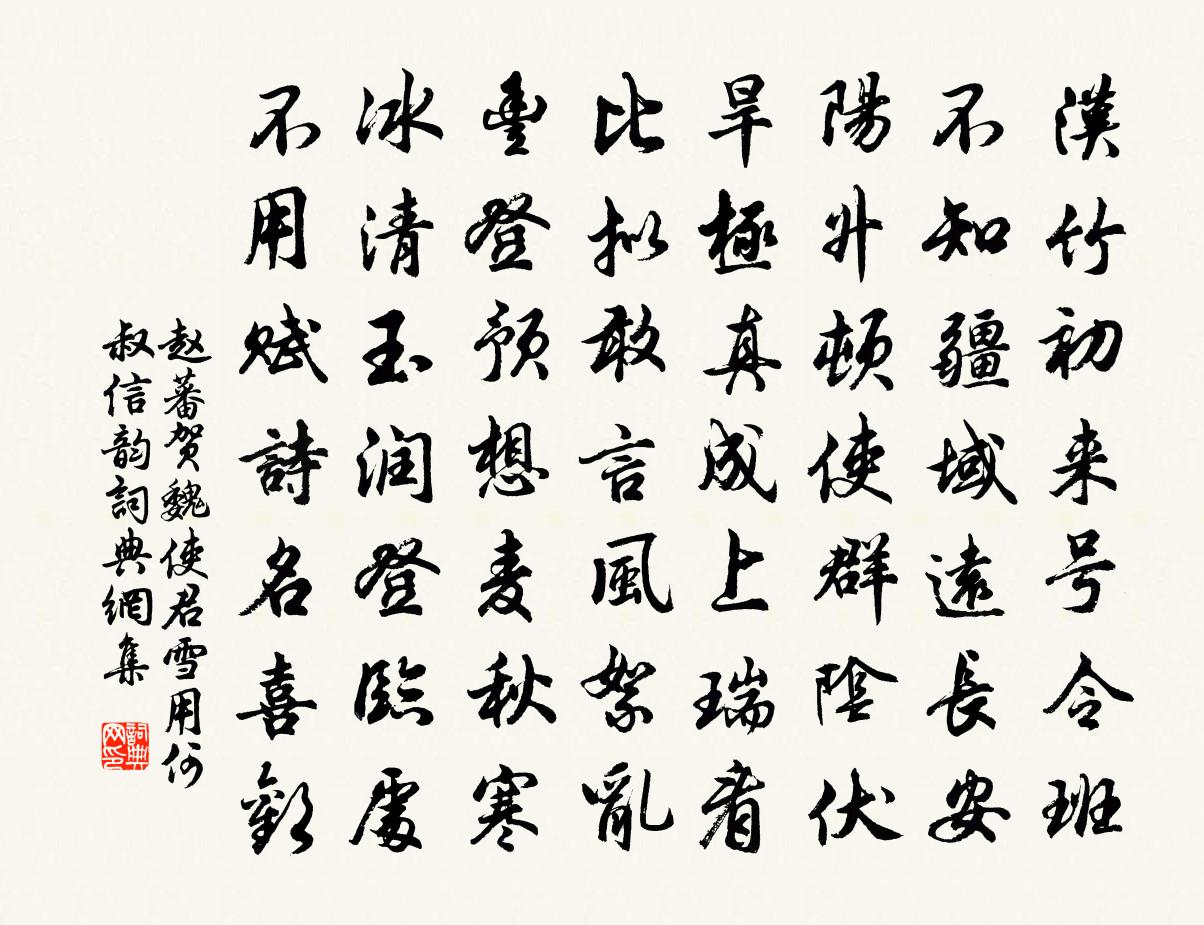 漢竹初来号令班
不知疆域遠長安
陽升頓使群陰伏
旱極真成上瑞看
比拟敢言風絮亂
豊登预想麦秋寒
冰清玉润登臨處
不用赋詩名喜歡
赵蕃贺魏使君雪用何
叔信韵詞典網集
詞典网印